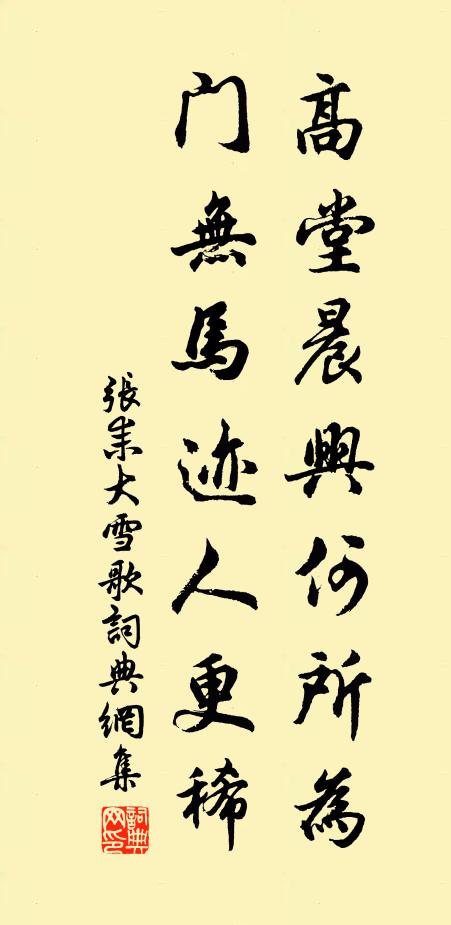 高堂晨興何所為
門無馬迹人更稀
張耒大雪歌詞典網集
詞典網印